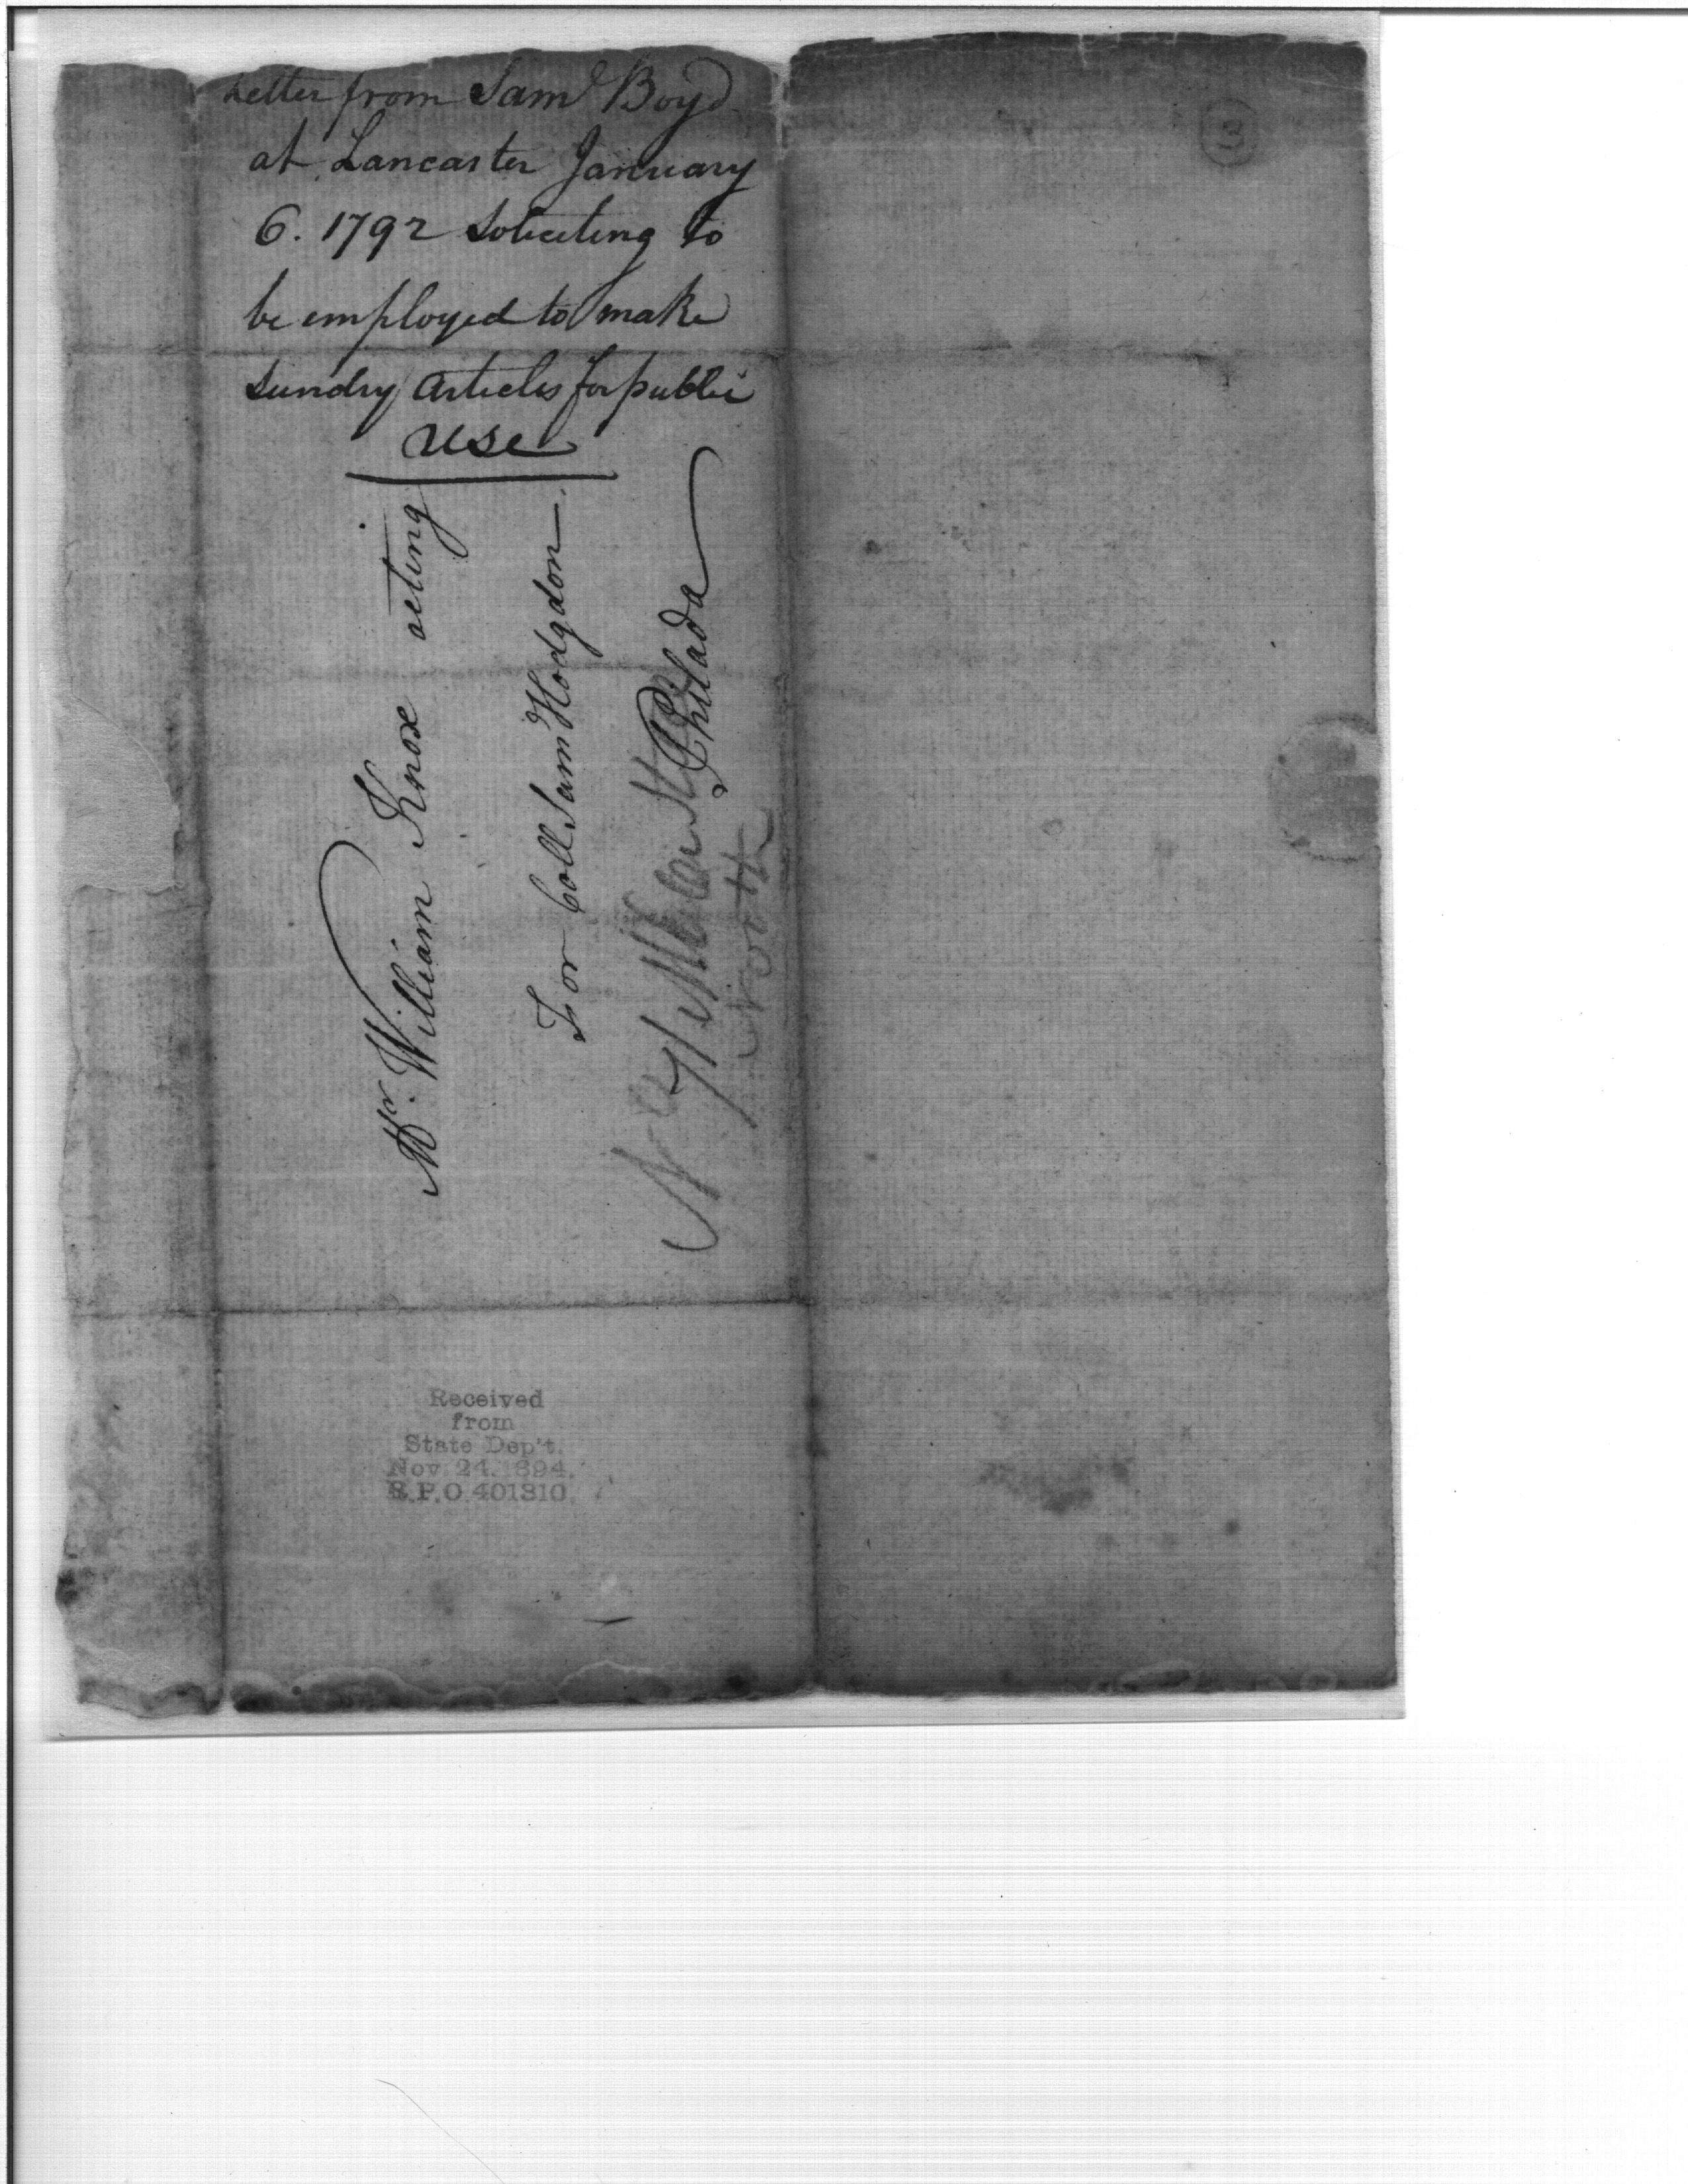 Letter from Saml Boyd
at Lancaster January
6. 1792 Soliciting to
be employed to make
Sundry Articles for public
use
Mr. William Knox acting
For Coll Saml Hodgdon
Philada
No 71
North
Received
from
State Dep't.
Nov. 24. 1894.
R.P.O. 401310.